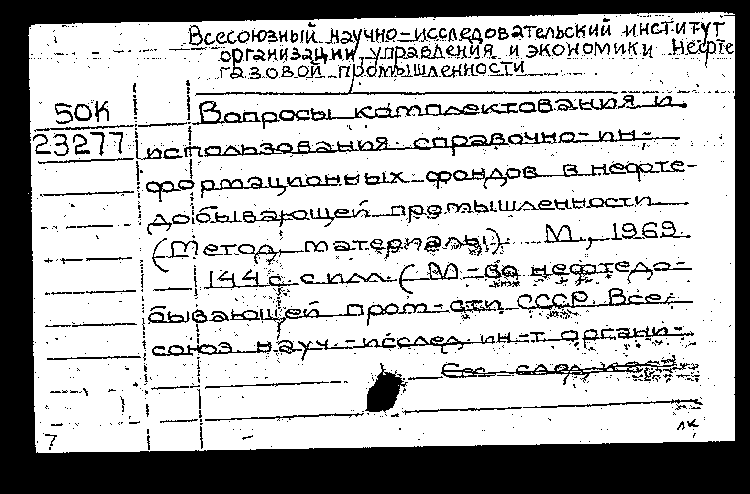 Всесоюзный научно-исследовательский институт
организации управления и экономики нефте
газовой промышленности
50К
23277
Вопросы комплектования и
использования справочно-ин-
формационных фондов в нефте-
добывающей промышленности
(Метод. материалы). М., 1969.
144 с. с илл. (М-во нефтедо-
бывающей пром-сти СССР. Все-
союз. науч.-исслед. ин-т органи-
См. след.
7
лк